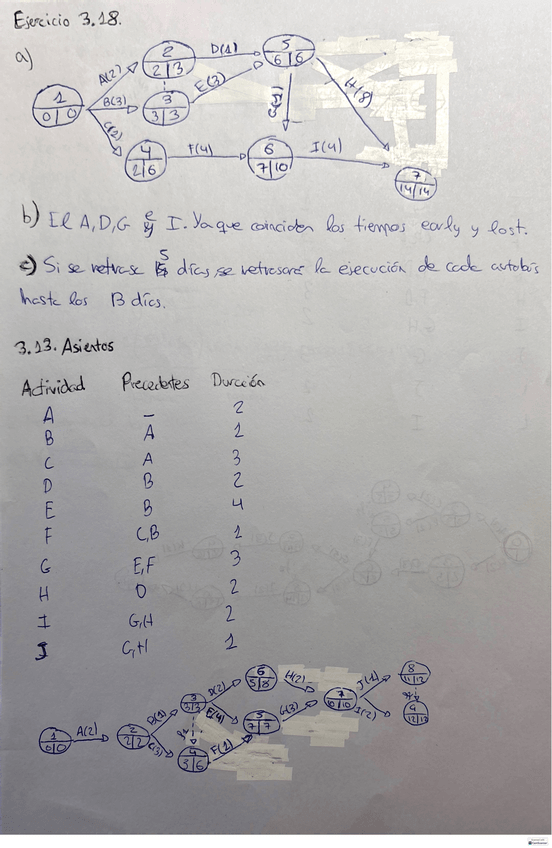 Ejercicio 3.18.
a)
1 0|0
A(2)
B(3)
C(2)
2 2|3
3 3|3
4 2|6
D(1)
E(3)
F(4)
5 6|6
6 7|10
H(8)
I(4)
7 14|14
b) A, D, G e I. Ya que coinciden los tiempos early y last.
c) Si se retrasa 5 días, se retrasará la ejecución de cada autobús
hasta los 13 días.
3.13. Asientos
Actividad Precedentes Durción
A – 2
B A 1
C A 3
D B 2
E B 4
F C,B 1
G E,F 3
H D 2
I G,H 2
J G,H 1
1 0|0
A(2)
2 2|2
C(3)
3 3|3
4 3|6
D(2)
E(4)
F(1)
6 5|8
5 7|7
H(2)
G(3)
7 10|10
J(1)
I(2)
8 11|12
9 12|12